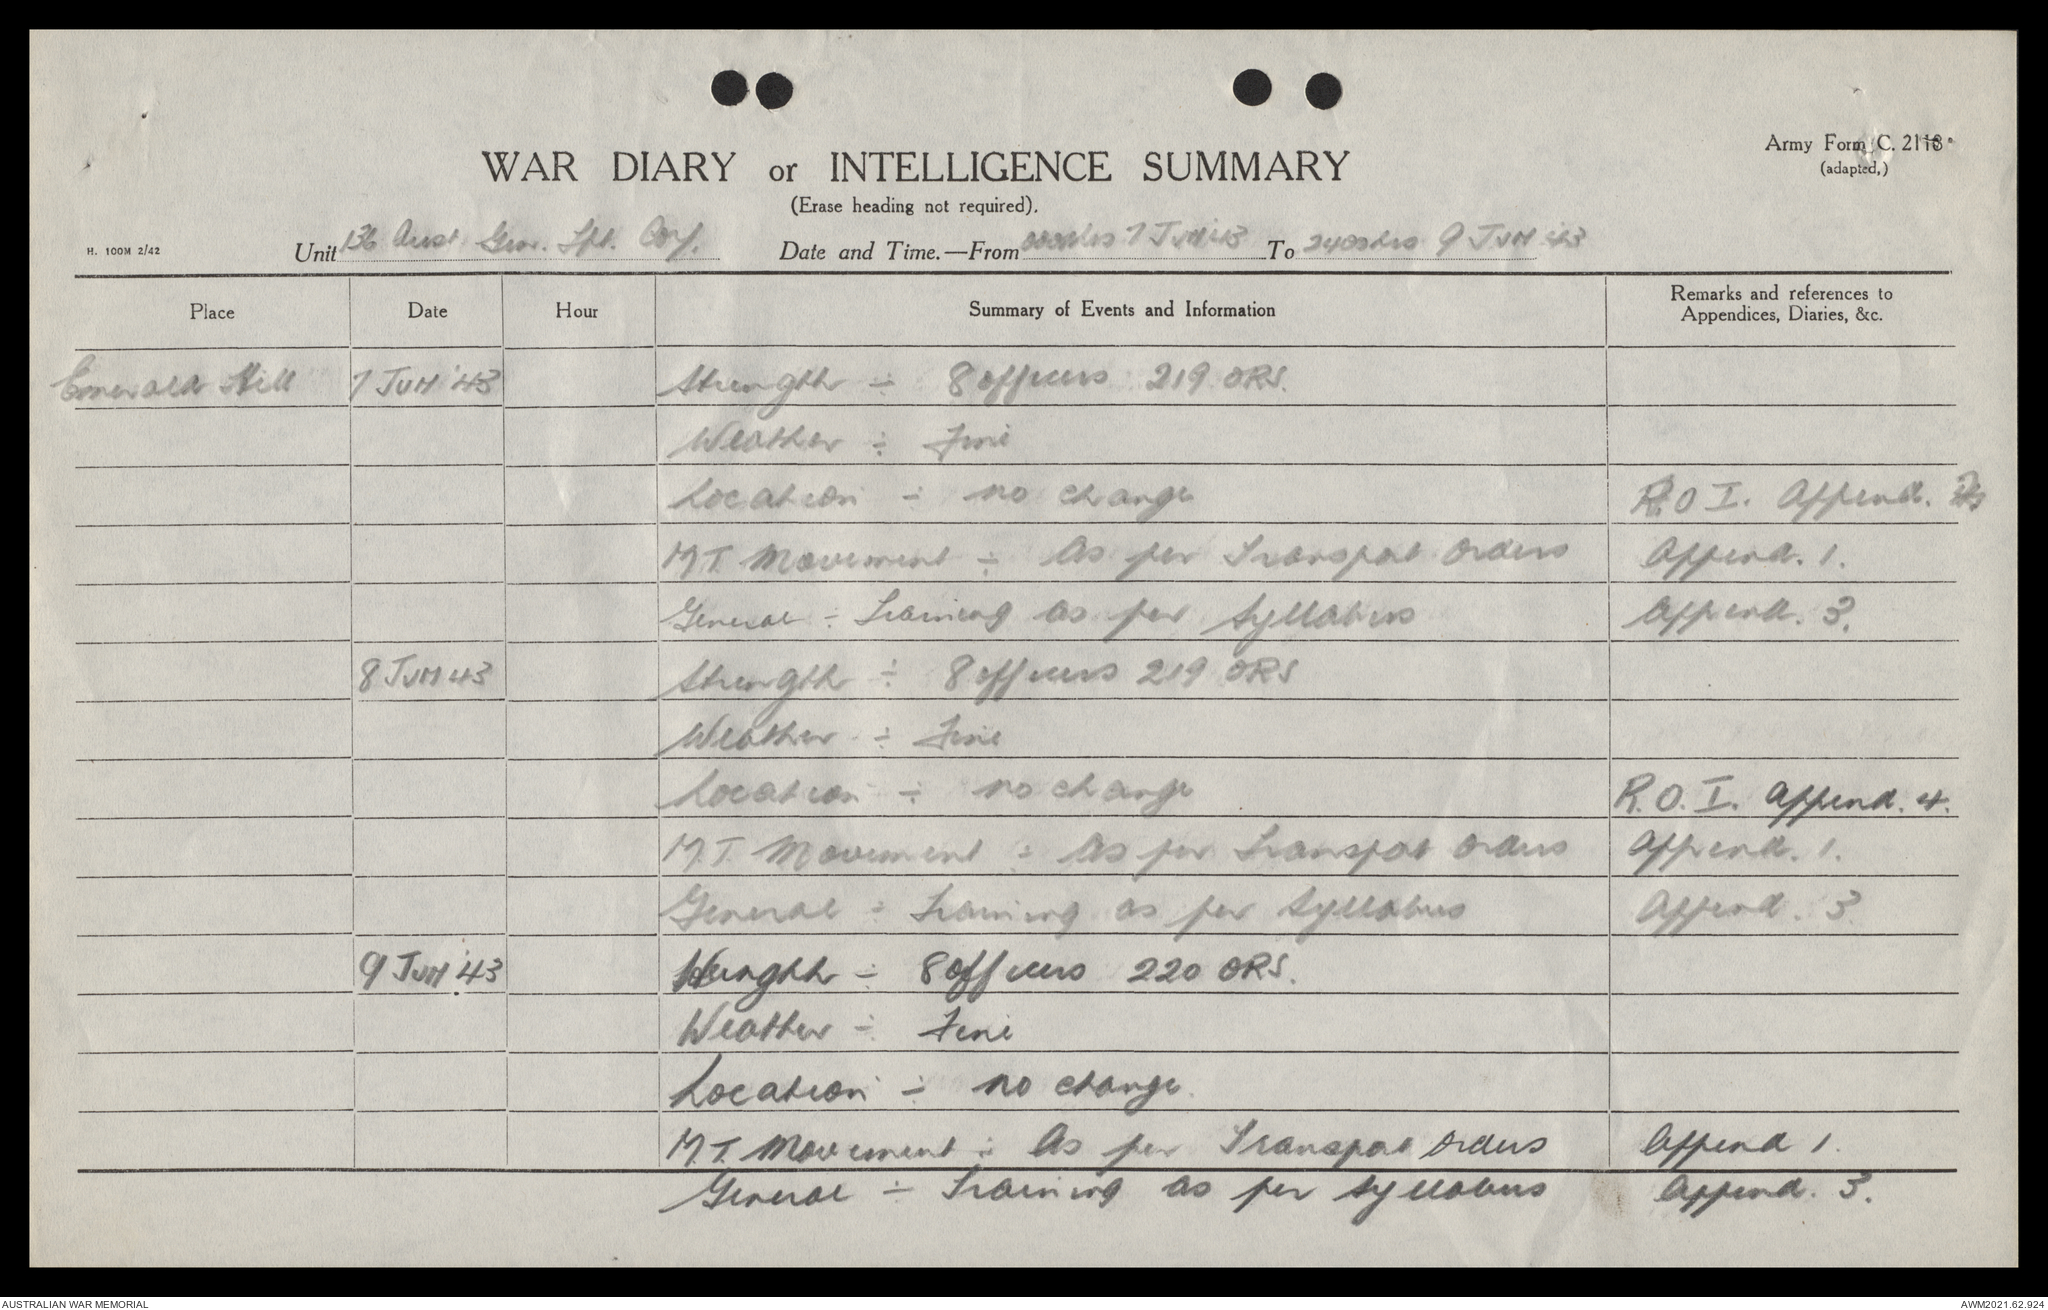 Army Form C. 2118.
(adapted,)
WAR DIARY or INTELLIGENCE SUMMARY
(Erase heading not required).
H. 100M 2/42
Unit 136 Aust. Gen. Tpt. Coy. Date and Time.—From 0001hrs 7 JUN 43 To 2400hrs 9 JUN 43
Place Date Hour Summary of Events and Information Remarks and references to Appendices, Diaries, &c.
Emerald Hill 7 JUN '43 Strength ÷ 8 officers 219 ORS.
Weather ÷ Fine
Location ÷ no change R.O I. Append.
M.T. Movement ÷ As per Transpot Orders Append. 1.
General ÷ Training as per Syllabus Append. 3.
8 JUN 43 Strength ÷ 8 officers 219 ORS
Weather ÷ Fine
Location ÷ no change R.O.I. Append. 4.
M.T. Movement ÷ As per Transpot Orders Append. 1.
General ÷ Training as per Syllabus Append. 3
9 JUN '43 Strength ÷ 8 officers 220 ORS.
Weather ÷ Fine
Location ÷ no change.
M.T. Movement ÷ As per Transpot Orders Append 1.
General ÷ Training as per Syllabus Append. 3.
AUSTRALIAN WAR MEMORIAL AWM2021.62.924